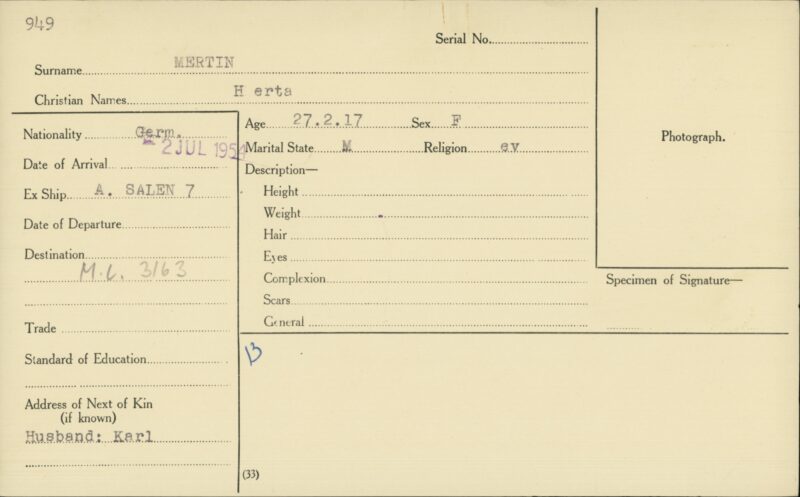 949
Serial No.
Surname MERTIN
Christian Names H erta
Nationality Germ.
Age 27.2.17 Sex F
Photograph.
- 2 JUL 1954
Marital State M Religion ev
Date of Arrival
Description—
Ex Ship A. SALEN 7
Height
Weight
Date of Departure
Hair
Destination
Eyes
M.C. 3163
Complexion
Specimen of Signature—
Scars
Trade
General
Standard of Education
B
Address of Next of Kin
(if known)
Husband: Karl
(33)